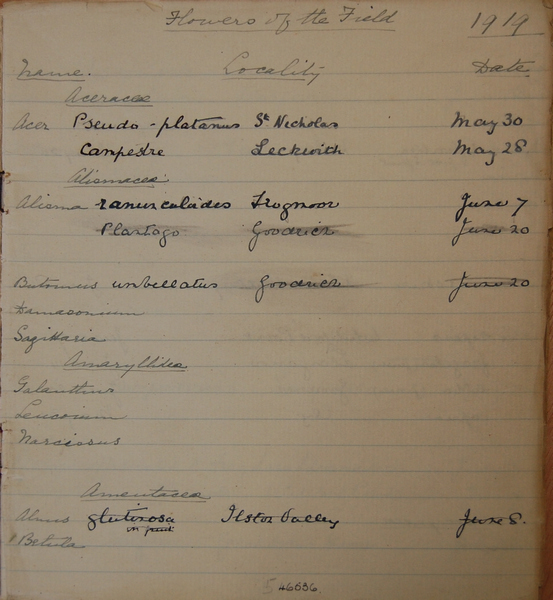 Flowers of the Field 1919
Name. Locality Date.
Aceraceæ
Acer Pseudo-platanus St Nicholas May 30
Campestre Leckwith May 28
Alismaceæ
Alisma ranunculoides Frogmoor June 7
Plantago Goodrich June 20
Butomus umbellatus Goodrich June 20
Damasonium
Sagittaria
Amaryllideæ
Galanthus
Leucoium
Narcissus
Amentaceæ
Alnus glutinosa Ilston Valley June 8.
in fruit
Betula
5 46636